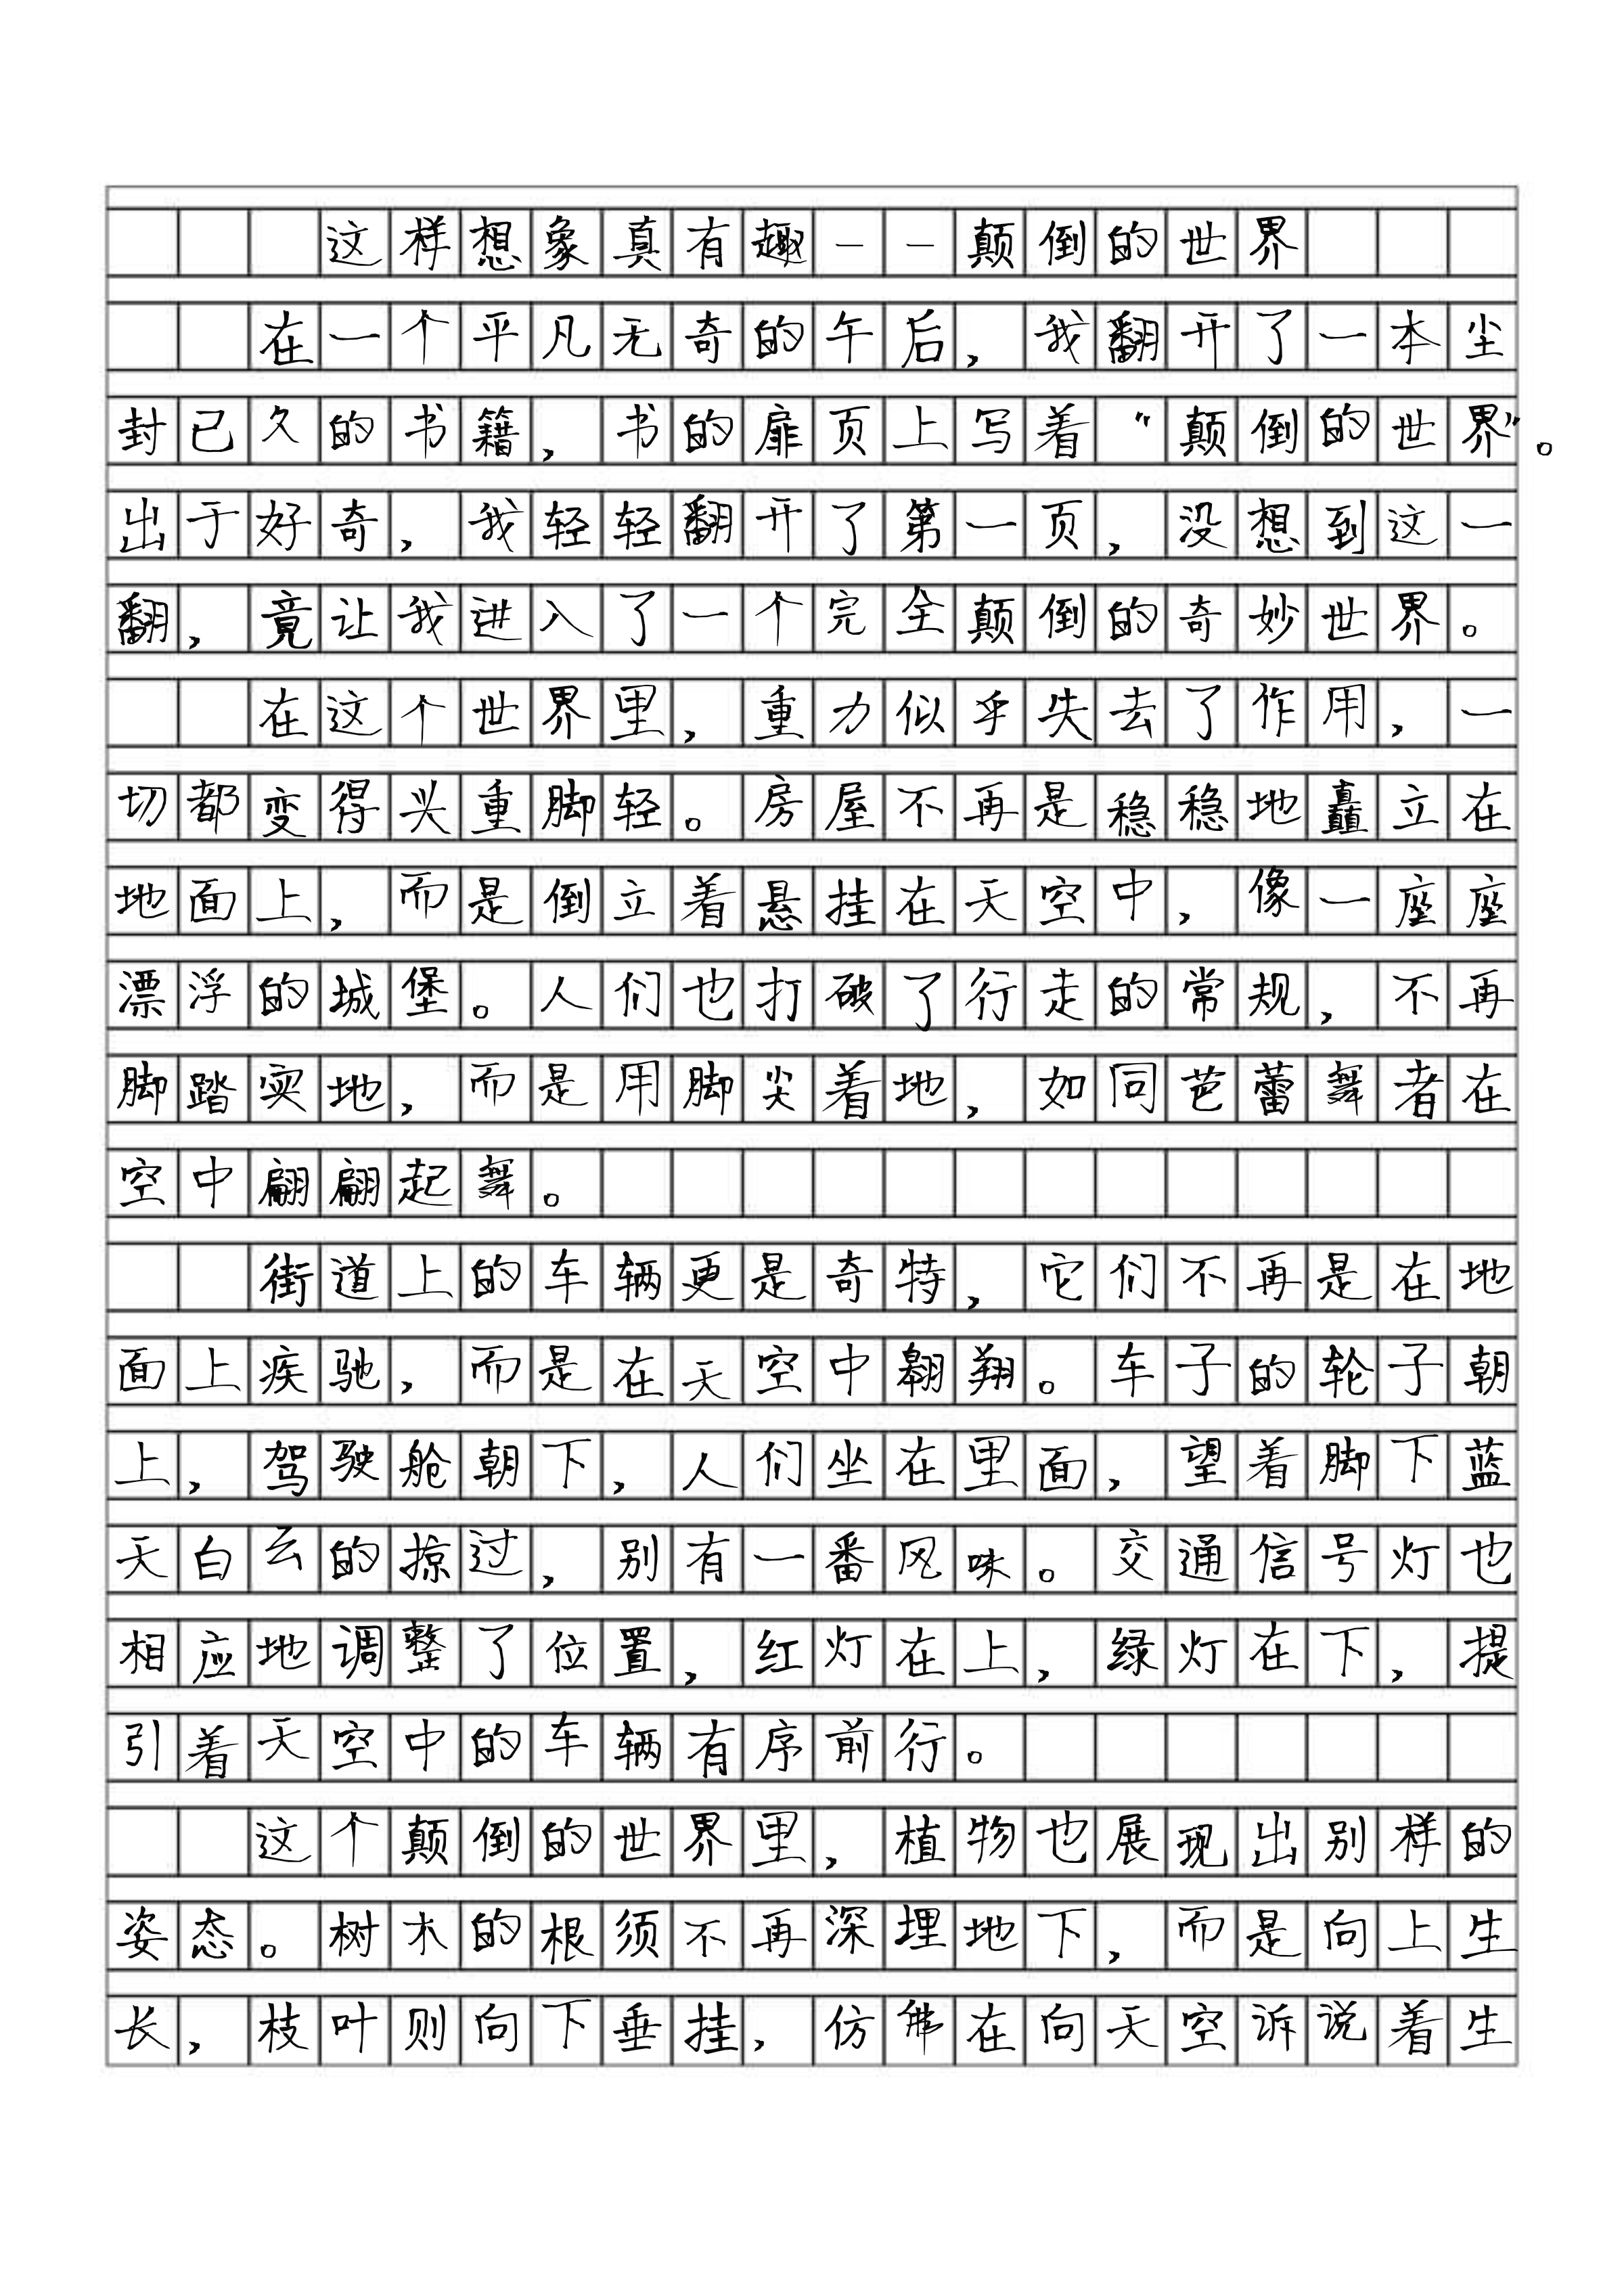 这样想象真有趣——颠倒的世界
在一个平凡无奇的午后，我翻开了一本尘
封已久的书籍，书的扉页上写着“颠倒的世界”。
出于好奇，我轻轻翻开了第一页，没想到这一
翻，竟让我进入了一个完全颠倒的奇妙世界。
在这个世界里，重力似乎失去了作用，一
切都变得头重脚轻。房屋不再是稳稳地矗立在
地面上，而是倒立着悬挂在天空中，像一座座
漂浮的城堡。人们也打破了行走的常规，不再
脚踏实地，而是用脚尖着地，如同芭蕾舞者在
空中翩翩起舞。
街道上的车辆更是奇特，它们不再是在地
面上疾驰，而是在天空中翱翔。车子的轮子朝
上，驾驶舱朝下，人们坐在里面，望着脚下蓝
天白云的掠过，别有一番风味。交通信号灯也
相应地调整了位置，红灯在上，绿灯在下，提
引着天空中的车辆有序前行。
这个颠倒的世界里，植物也展现出别样的
姿态。树木的根须不再深埋地下，而是向上生
长，枝叶则向下垂挂，仿佛在向天空诉说着生